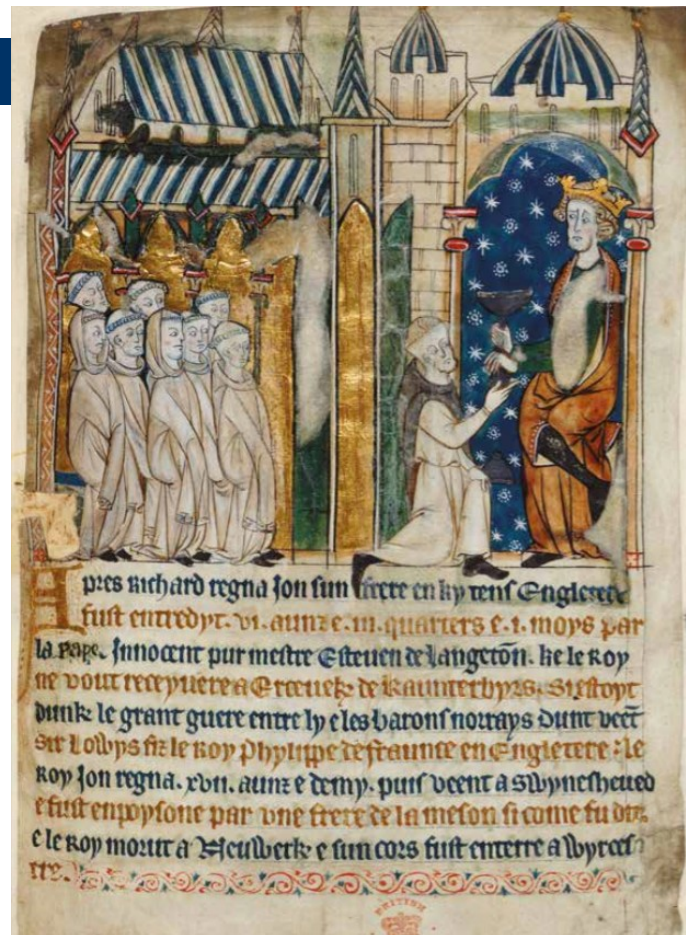 Apres Richard regna Ion sun frere en ky tens Engletere
fust entredyt . vi . aunz e . iii . quarters e . i . moys par
la pape . Innocent pur mestre Esteuen de Langetõn . ke le Roy
ne vout receyuere a Erceuesk de Kaunterbyrs . Si estoyt
dunk le grant guere entre ly e les barons norrays dunt veẽt
sir Lowys fiz le Roy Phylippe de fraunce en Engletere : le
Roy Ion regna . xvii . aunz e demy . puis veent a Swynesheued
e fust enpoysone par vne frere de la meson si come fu dit
e le Roy morut a Neuwerk e sun cors fust enterre a Wyrces
tre .
BRITISH